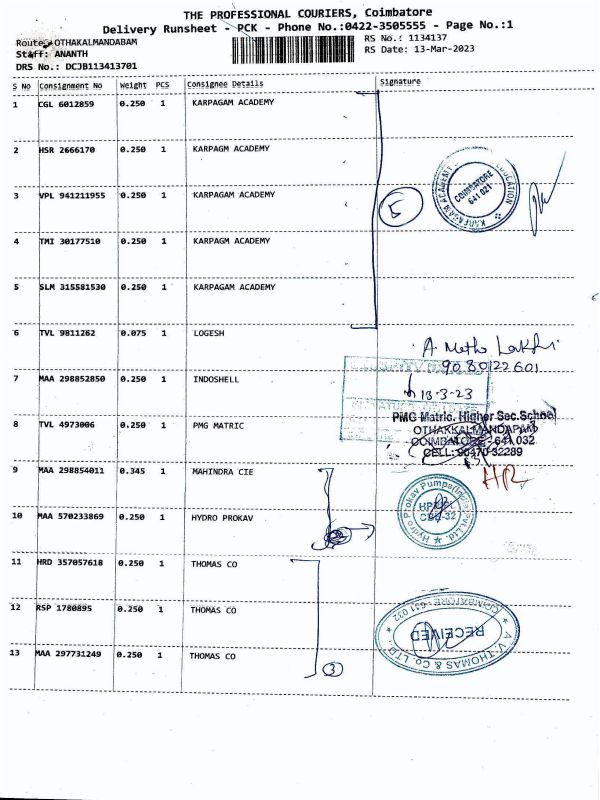 THE PROFESSIONAL COURIERS, Coimbatore
Delivery Runsheet - PCK - Phone No.:0422-3505555 - Page No.:1
Route: OTHAKALMANDABAM
RS No.: 1134137
Staff: ANANTH
RS Date: 13-Mar-2023
DRS No.: DCJB113413701
S No Consignment No Weight PCS Consignee Details Signature
1 CGL 6012859 0.250 1 KARPAGAM ACADEMY
2 HSR 2666170 0.250 1 KARPAGM ACADEMY
3 VPL 941211955 0.250 1 KARPAGAM ACADEMY
5
COIMBATORE
641 021
4 TMI 30177510 0.250 1 KARPAGM ACADEMY
5 SLM 315581530 0.250 1 KARPAGAM ACADEMY
6 TVL 9811262 0.075 1 LOGESH
9080122601
7 MAA 298852850 0.250 1 INDOSHELL
13-3-23
8 TVL 4973006 0.250 1 PMG MATRIC
PMG Matric. Higher Sec.School
OTHAKKALMANDAPAM
COIMBATORE - 641 032
CELL: 90470 32289
9 MAA 298854011 0.345 1 MAHINDRA CIE
10 MAA 570233869 0.250 1 HYDRO PROKAV
CBE-32
11 HRD 357057618 0.250 1 THOMAS CO
12 RSP 1780895 0.250 1 THOMAS CO
A.V. THOMAS & Co. LTD.
RECEIVED
COIMBATORE - 641 032
13 MAA 297731249 0.250 1 THOMAS CO
3